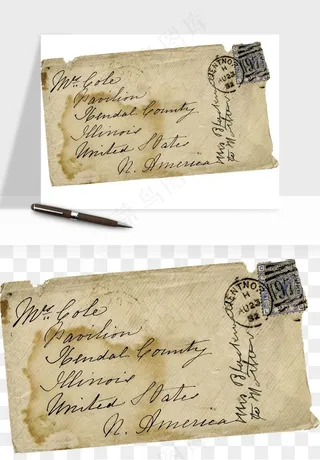 Mrs. Cole
Pavilion
Kendal County
Illinois
United States
N. America
VENTNOR
H
AU 23
82
Mrs. Cole
Pavilion
Kendal County
Illinois
United States
N. America
VENTNOR
H
AU 23
82